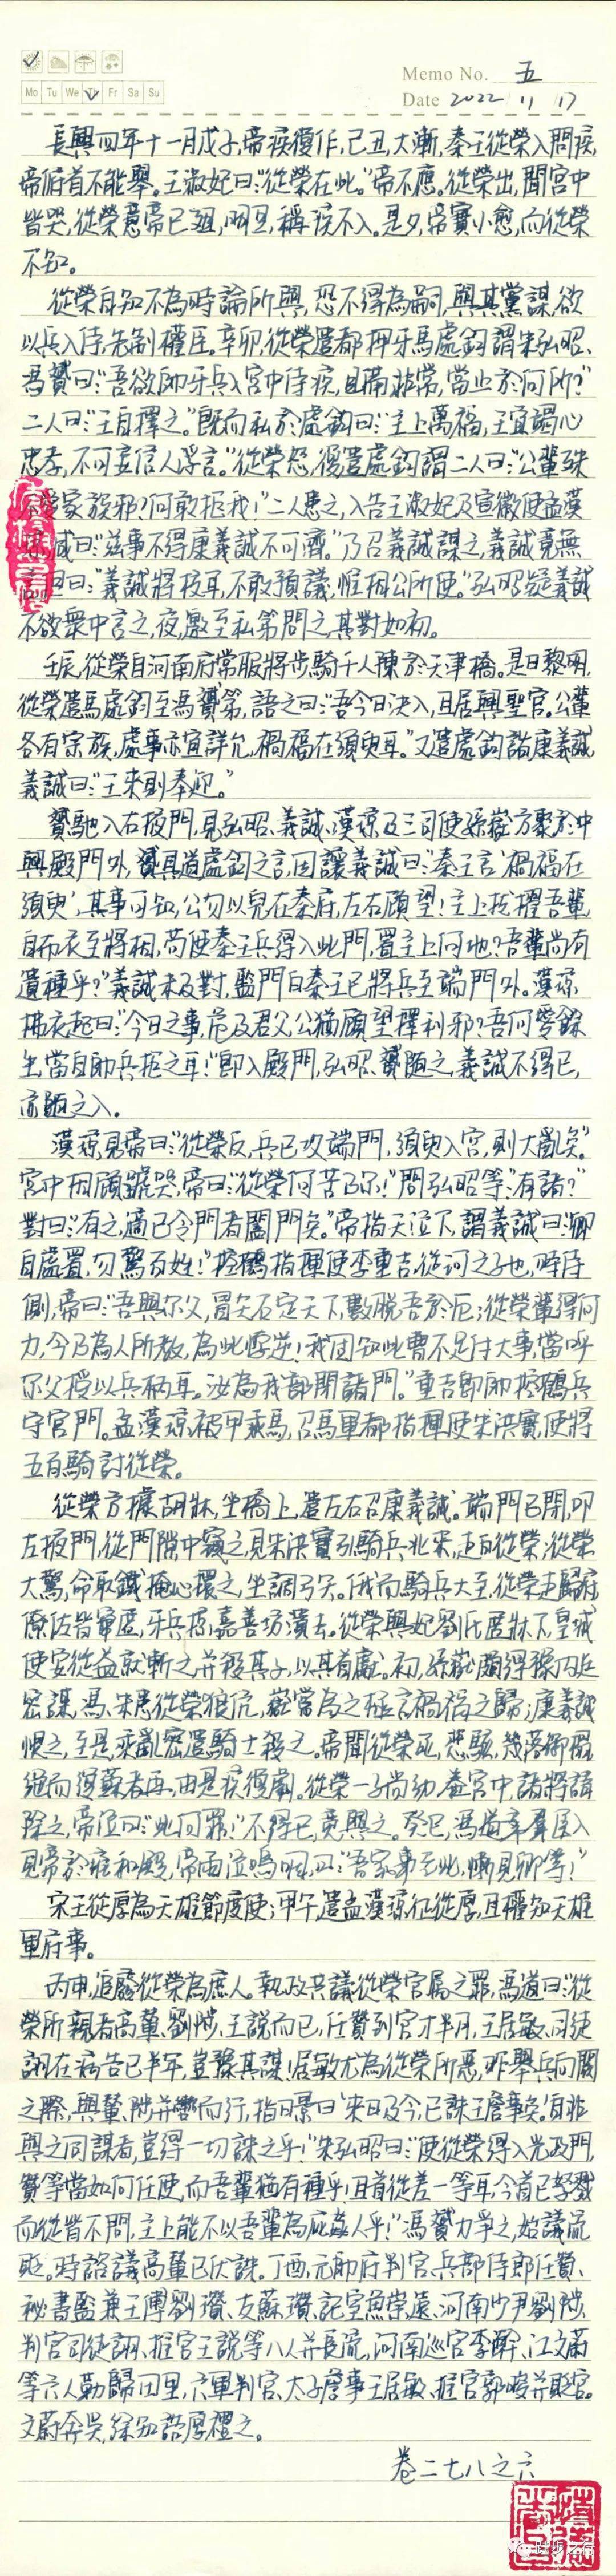 Memo No. 五
Mo Tu We Th Fr Sa Su
Date 2022 11 17
長興四年十一月戊子,帝疾復作,己丑,大漸,秦王從榮入問疾,
帝俯首不能舉。王淑妃曰:“從榮在此。”帝不應。從榮出,聞宮中
皆哭,從榮意帝已殂,明旦,稱疾不入。是夕,帝實小愈,而從榮
不知。
從榮自知不為時論所與,恐不得為嗣,與其黨謀,欲
以兵入侍,先制權臣。辛卯,從榮遣都押牙馬處鈞謂朱弘昭、
馮贇曰:“吾欲帥牙兵入宮中侍疾,且備非常,當止於何所?”
二人曰:“王自擇之。”既而私於處鈞曰:“主上萬福,王宜竭心
忠孝,不可妄信人浮言。”從榮怒,復遣處鈞謂二人曰:“公輩殊
家族邪?何敢拒我!”二人患之,入告王淑妃及宣徽使孟漢
咸曰:“茲事不得康義誠不可濟。”乃召義誠謀之,義誠竟無
但曰:“義誠將校耳,不敢預議,惟相公所使。”弘昭疑義誠
不欲眾中言之,夜,邀至私第問之,其對如初。
壬辰,從榮自河南府常服將步騎千人陳於天津橋。是日黎明,
從榮遣馬處鈞至馮贇第,語之曰:“吾今日決入,且居興聖宮。公輩
各有宗族,處事亦宜詳允,禍福在須臾耳。”又遣處鈞詣康義誠,
義誠曰:“王來則奉迎。”
贇馳入右掖門,見弘昭、義誠、漢瓊及三司使孫岳方聚於中
興殿門外,贇具道處鈞之言,因讓義誠曰:“秦王言‘禍福在
須臾’,其事可知,公勿以兒在秦府,左右顧望!主上拔擢吾輩,
自布衣至將相,苟使秦王兵得入此門,置主上何地?吾輩尚有
遺種乎?”義誠未及對,監門白秦王已將兵至端門外。漢瓊
拂衣起曰:“今日之事,危及君父,公猶顧望擇利邪?吾何愛餘
生,當自帥兵拒之耳!”即入殿門,弘昭、贇隨之,義誠不得已,
亦隨之入。
漢瓊見帝曰:“從榮反,兵已攻端門,須臾入宮,則大亂矣。”
宮中相顧號哭,帝曰:“從榮何苦乃尔!”問弘昭等:“有諸?”
對曰:“有之,適已令門者闔門矣。”帝指天泣下,謂義誠曰:“卿
自處置,勿驚百姓!”控鶴指揮使李重吉,從珂之子也,時侍
側,帝曰:“吾與尔父,冒矢石定天下,數脫吾於厄;從榮輩得何
力,今乃為人所教,為此悖逆!我固知此曹不足付大事,當呼
尔父授以兵柄耳。汝為我部閉諸門。”重吉即帥控鶴兵
守宮門。孟漢瓊被甲乘馬,召馬軍都指揮使朱洪實,使將
五百騎討從榮。
從榮方據胡牀,坐橋上,遣左右召康義誠。端門已閉,叩
左掖門,從門隙中窺之,見朱洪實引騎兵北來,走白從榮;從榮
大驚,命取鐵掩心擐之,坐調弓矢。俄而騎兵大至,從榮走歸府,
僚佐皆竄匿,牙兵掠嘉善坊潰去。從榮與妃劉氏匿牀下,皇城
使安從益就斬之,并殺其子,以其首獻。初,孫岳頗得豫內廷
密謀,馮、朱患從榮狼伉,岳嘗為之極言禍福之歸;康義誠
恨之,至是,乘亂密遣騎士殺之。帝聞從榮死,悲駭,幾落御榻,
絕而復蘇者再,由是疾復劇。從榮一子尚幼,養宮中,諸將請
除之,帝泣曰:“此何罪!”不得已,竟與之。癸巳,馮道率群臣入
見帝於雍和殿,帝雨泣嗚咽,曰:“吾家事至此,慚見卿等!”
宋王從厚為天雄節度使;甲午,遣孟漢瓊征從厚,且權知天雄
軍府事。
丙申,追廢從榮為庶人。執政共議從榮官屬之罪,馮道曰:“從
榮所親者高輦、劉陟、王說而已,任贊到官才半月,王居敏、司徒
詡在病告已半年,豈豫其謀!居敏尤為從榮所惡,昨舉兵向闕
之際,與輦、陟并轡而行,指日景曰‘來日及今,已誅王詹事矣。’自非
與之同謀者,豈得一切誅之乎!”朱弘昭曰:“使從榮得入光政門,
贊等當如何任使,而吾輩猶有種乎!且首從差一等耳,今首已孥戮
而從皆不問,主上能不以吾輩為庇姦人乎!”馮贇力爭之,始議流
貶。時諮議高輦已伏誅。丁酉,元帥府判官、兵部侍郎任贊、
秘書監兼王傅劉瓚、友蘇瓚、記室魚崇遠、河南少尹劉陟、
判官司徒詡、推官王說等八人并長流,河南巡官李瀚、江文蔚
等六人勒歸田里,六軍判官、太子詹事王居敏、推官郭晙并貶官。
文蔚奔吳,徐知誥厚禮之。
卷二七八之六